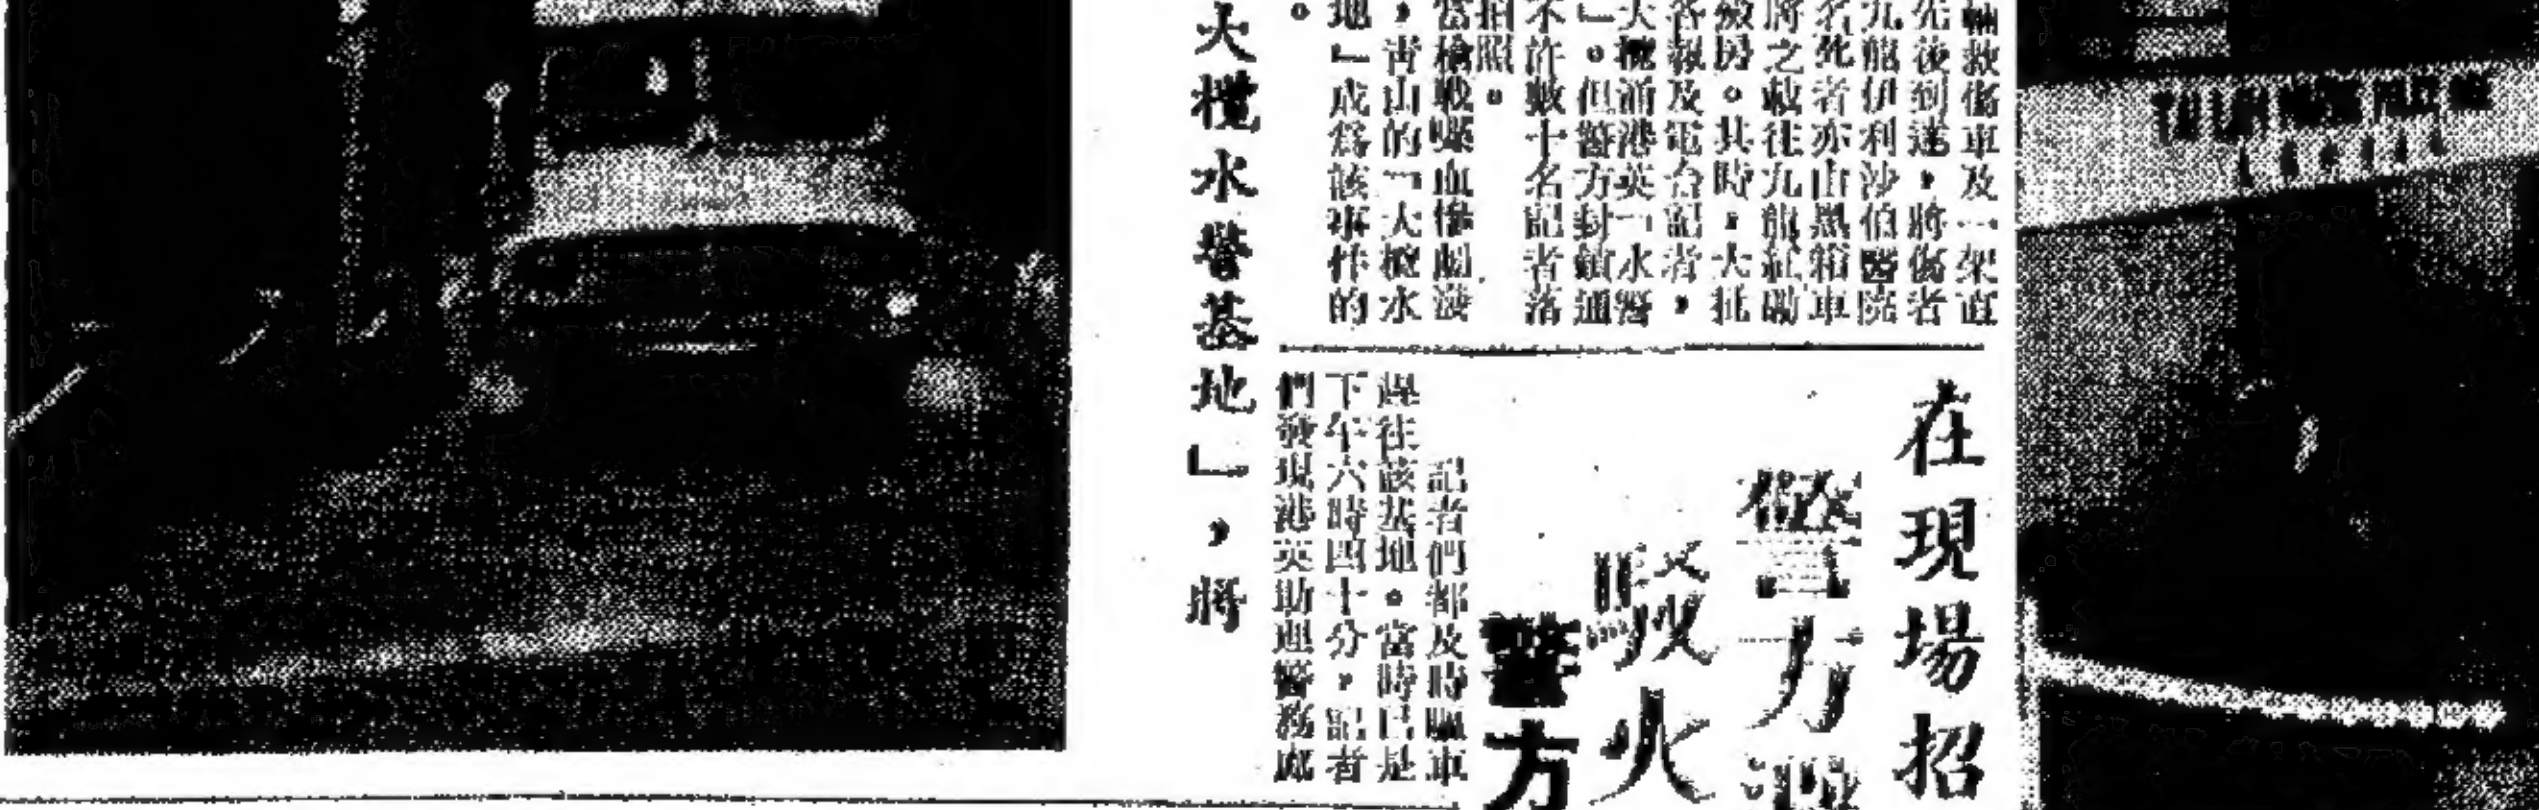 輛救傷車及一架直
先後到達，將傷者
九龍伊利沙伯醫院
名死者亦由黑箱車
將之載往九龍紅磡
殮房。其時，大批
各報及電台記者，
大欖涌港英「水警
」。但警方封鎖通
不許數十名記者落
拍照。
當槍戰喋血慘劇發
，青山的「大欖水
地」成為該事件的
。
大欖水警基地」，將
在現場招
警方
駁火
警方
記者們都及時驅車
趕往該基地。當時已是
下午六時四十分，記者
們發現港英助理警務處